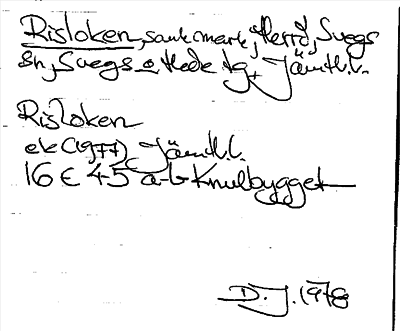 Risloken, sank mark, Herrö, Svegs
sn, Svegs o Hede tg, Jämtl.l.
Risloken
ek (1977) Jämtl.l.
16 E 45 a-b Knulbygget
D.J. 1978